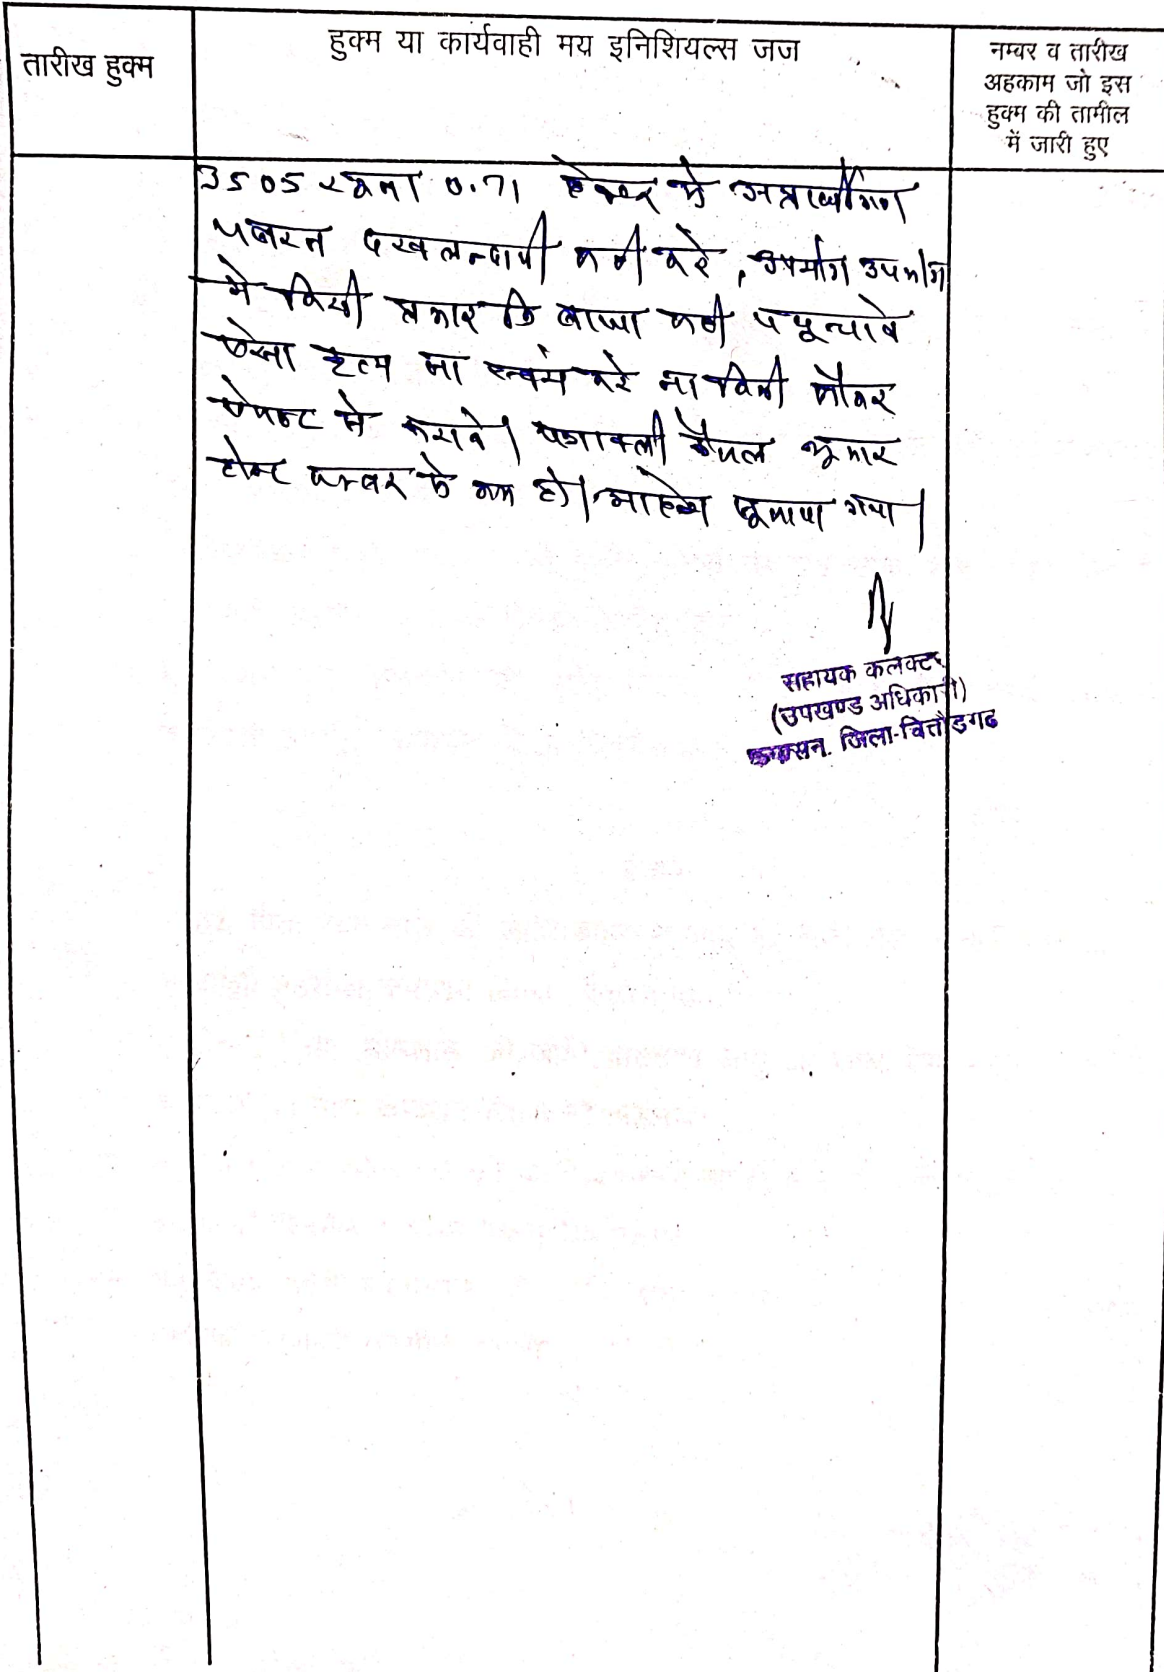 तारीख हुक्म
हुक्म या कार्यवाही मय इनिशियल्स जज
नम्बर व तारीख
अहकाम जो इस
हुक्म की तामील
में जारी हुए
3505 रकबा 0.71 हेक्टर मे अप्रार्थीगण
जबरन दखलन्दाजी नही करे, उपयोग उपभोग
मे किसी प्रकार कि बाधा नही पहूचावे
ऐसा कृत्य ना स्वंय करे ना किसी नौकर
ऐजन्ट से करावे। पत्रावली फैसल शूमार
होकर नम्बर से कम हो। आदेश सूनाया गया।
सहायक कलक्टर
(उपखण्ड अधिकारी)
जिला-चित्तौड़गढ